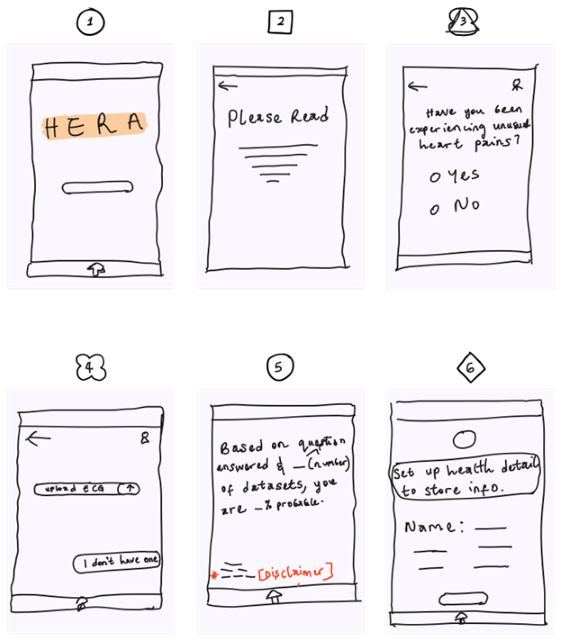 1
2
3
HERA
Please Read
Have you been
experiencing unusual
heart pains?
Yes
No
4
5
6
upload ECG
I don't have one
Based on question
answered & _ (number)
of datasets, you
are _% probable.
* [Disclaimer]
Set up health detail
to store info.
Name: